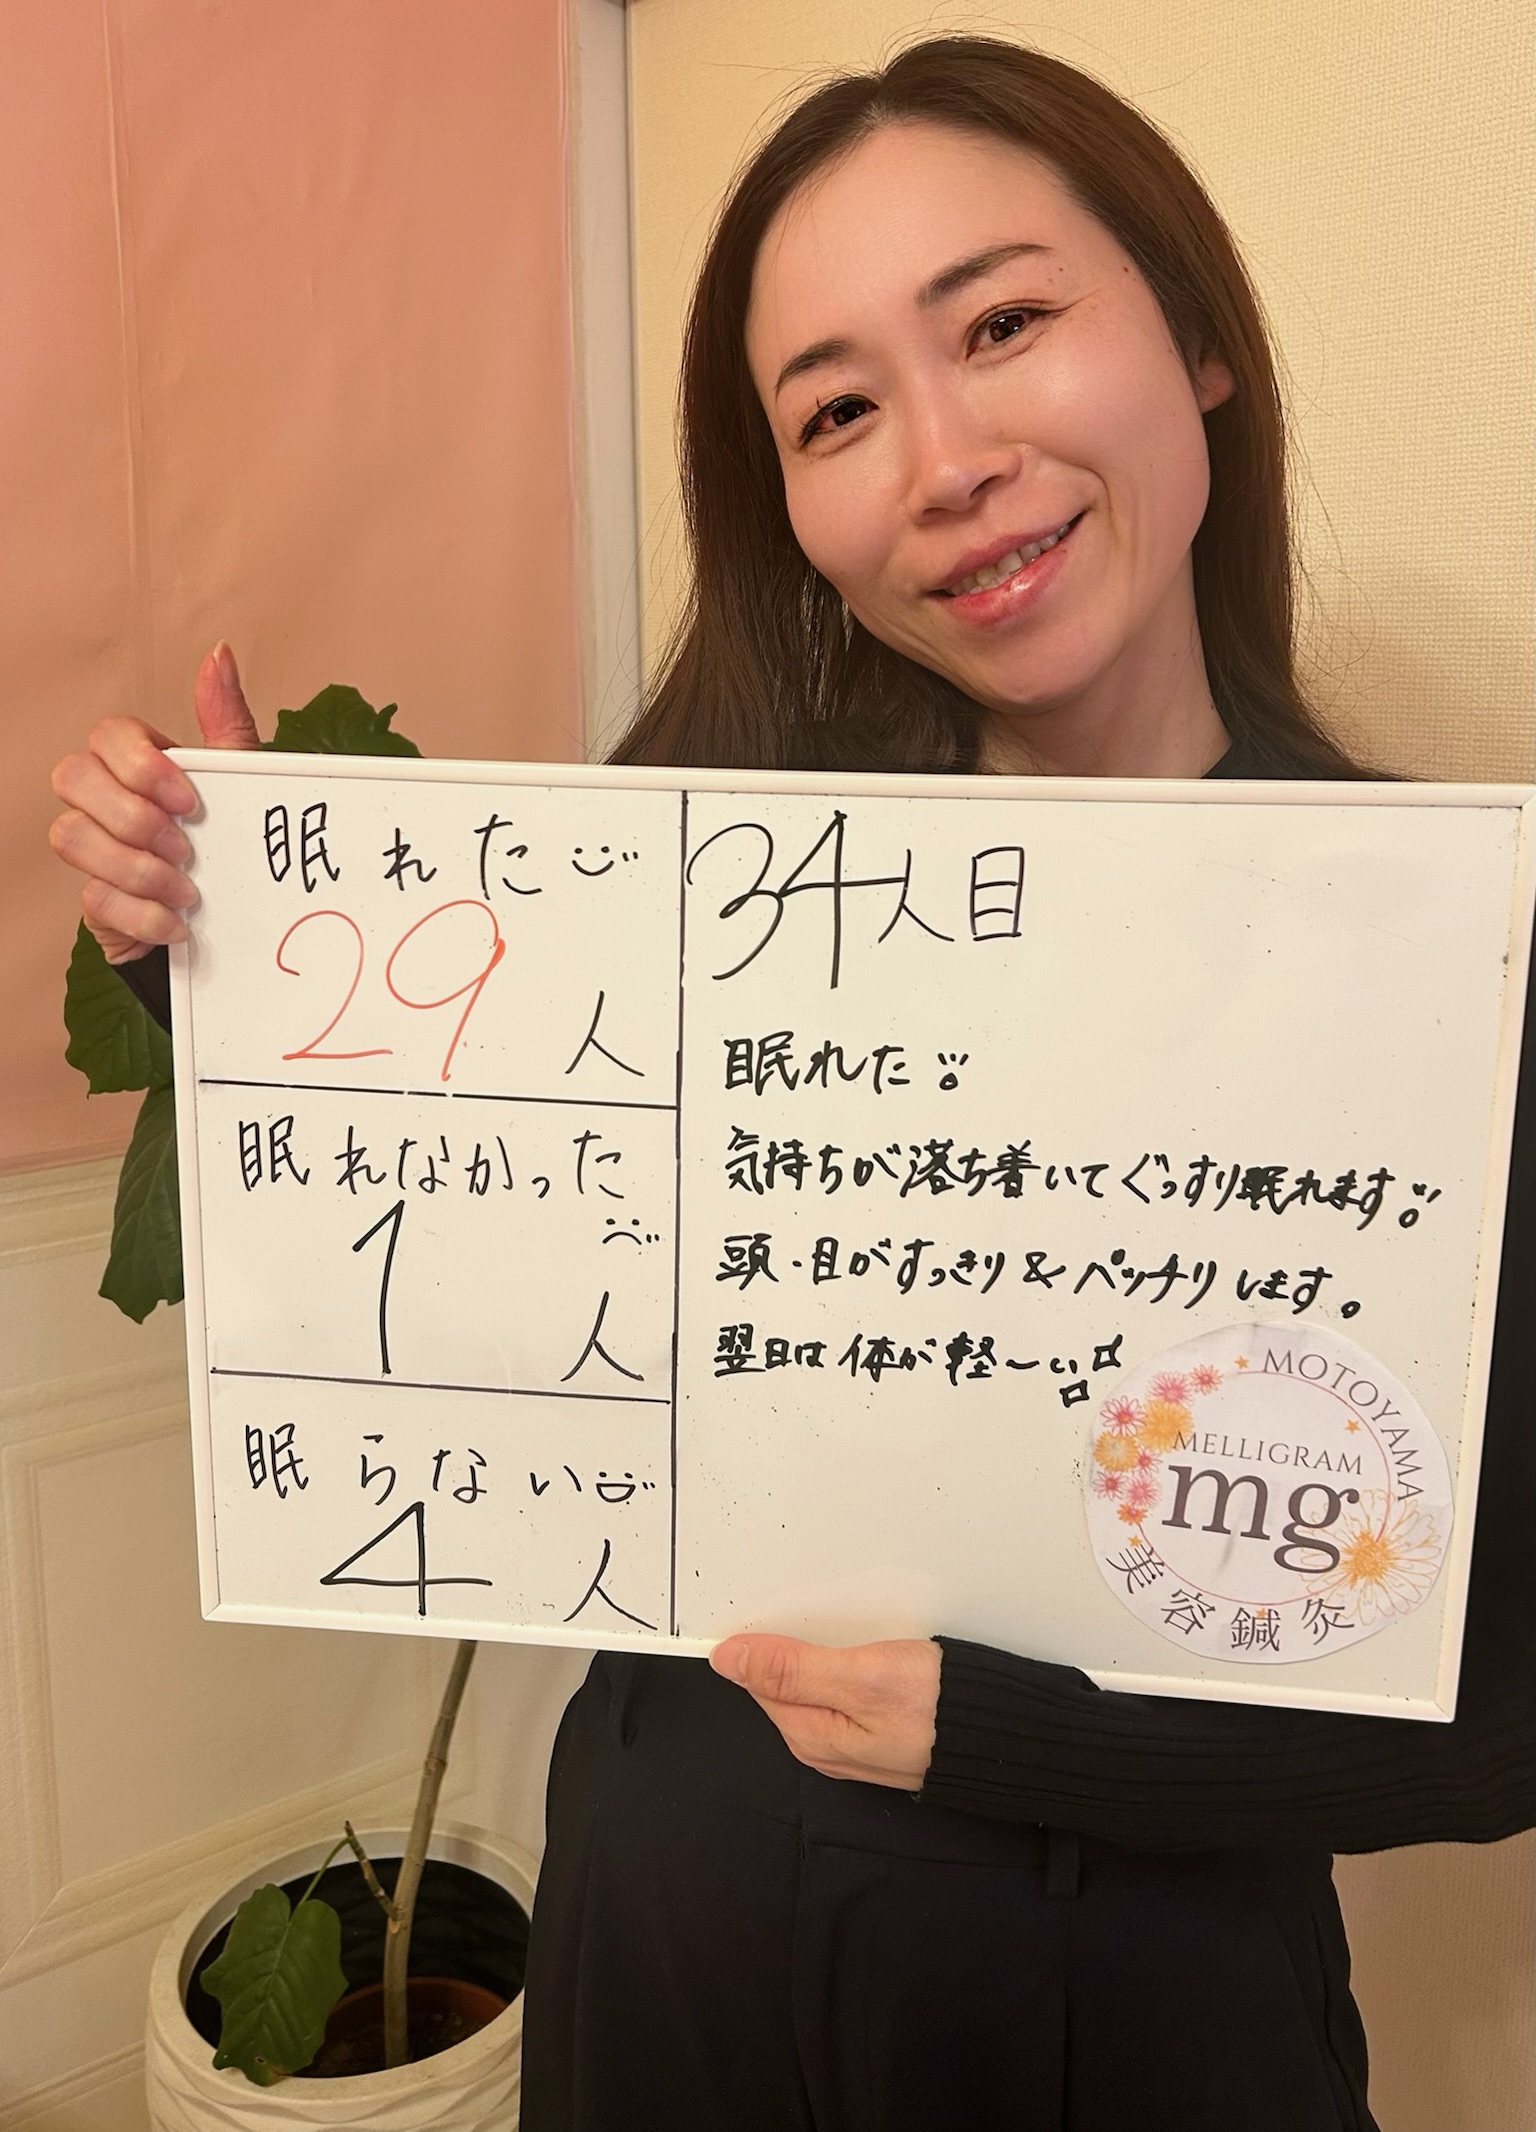 眠れた
29人
眠れなかった
1人
眠らない
4人
34人目
眠れた
気持ちが落ち着いてぐっすり眠れます
頭・目がすっきり&パッチリします。
翌日は体が軽〜い
MOTOYAMA
MELLIGRAM
mg
美容鍼灸